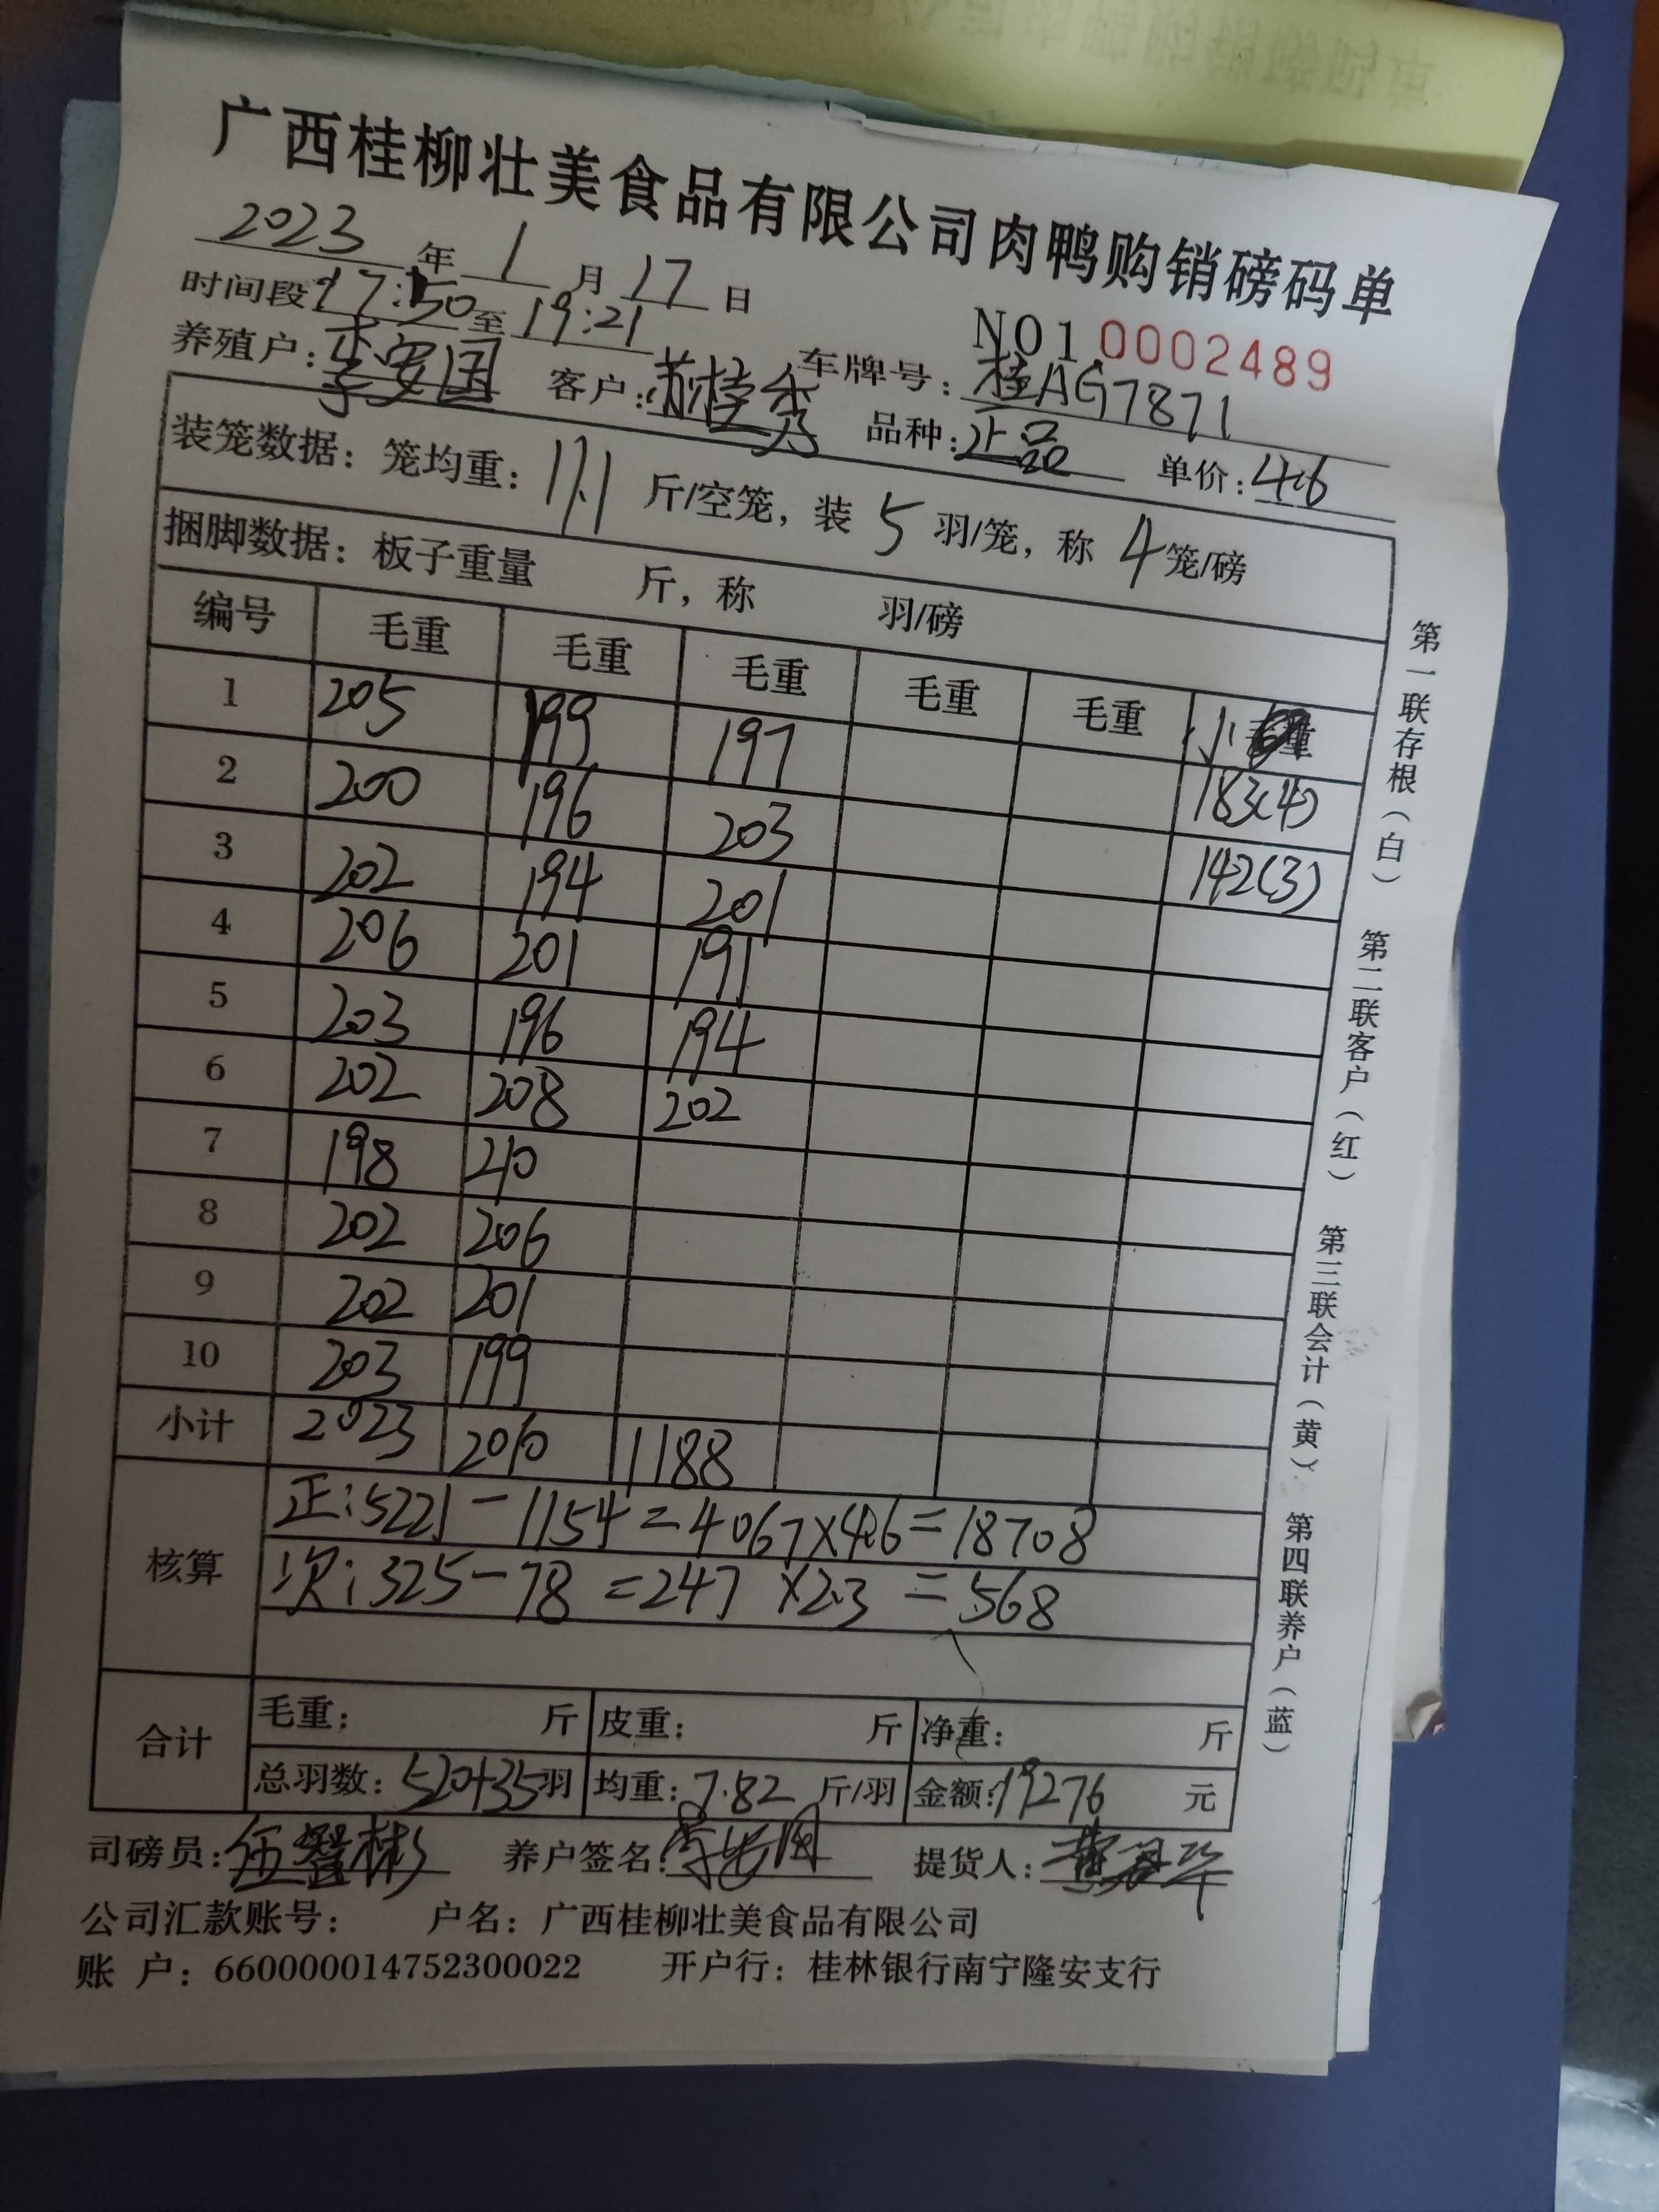 广西桂柳壮美食品有限公司肉鸭购销磅码单
2023年1月17日
NO1 0002489
时间段17:50至19:21 车牌号:桂AG7871
养殖户:李安国 客户:苏桂秀 品种:正品 单价:4.6
装笼数据:笼均重:11.1斤/空笼,装5羽/笼,称4笼/磅
捆脚数据:板子重量 斤,称 羽/磅
编号 毛重 毛重 毛重 毛重 毛重 小
1 205 199 197 183(4)
2 200 196 203 142(3)
3 202 194 201
4 206 201 191
5 203 196 194
6 202 208 202
7 198 210
8 202 206
9 202 201
10 203 199
小计 2023 2010 1188
核算 正:5221-1154=4067×4.6=18708
次:325-78=247×2.3=568
合计 毛重: 斤 皮重: 斤 净重: 斤
总羽数:520+35羽 均重:7.82斤/羽 金额:19276元
司磅员:伍 彬 养户签名:李安国 提货人:
公司汇款账号: 户名:广西桂柳壮美食品有限公司
账 户:660000014752300022 开户行:桂林银行南宁隆安支行
第一联存根(白) 第二联客户(红) 第三联会计(黄) 第四联养户(蓝)